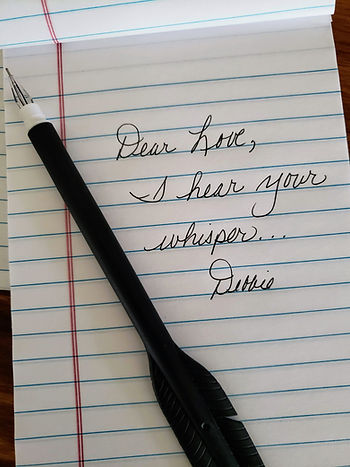 Dear Love,
I hear your
whisper...
Debbie